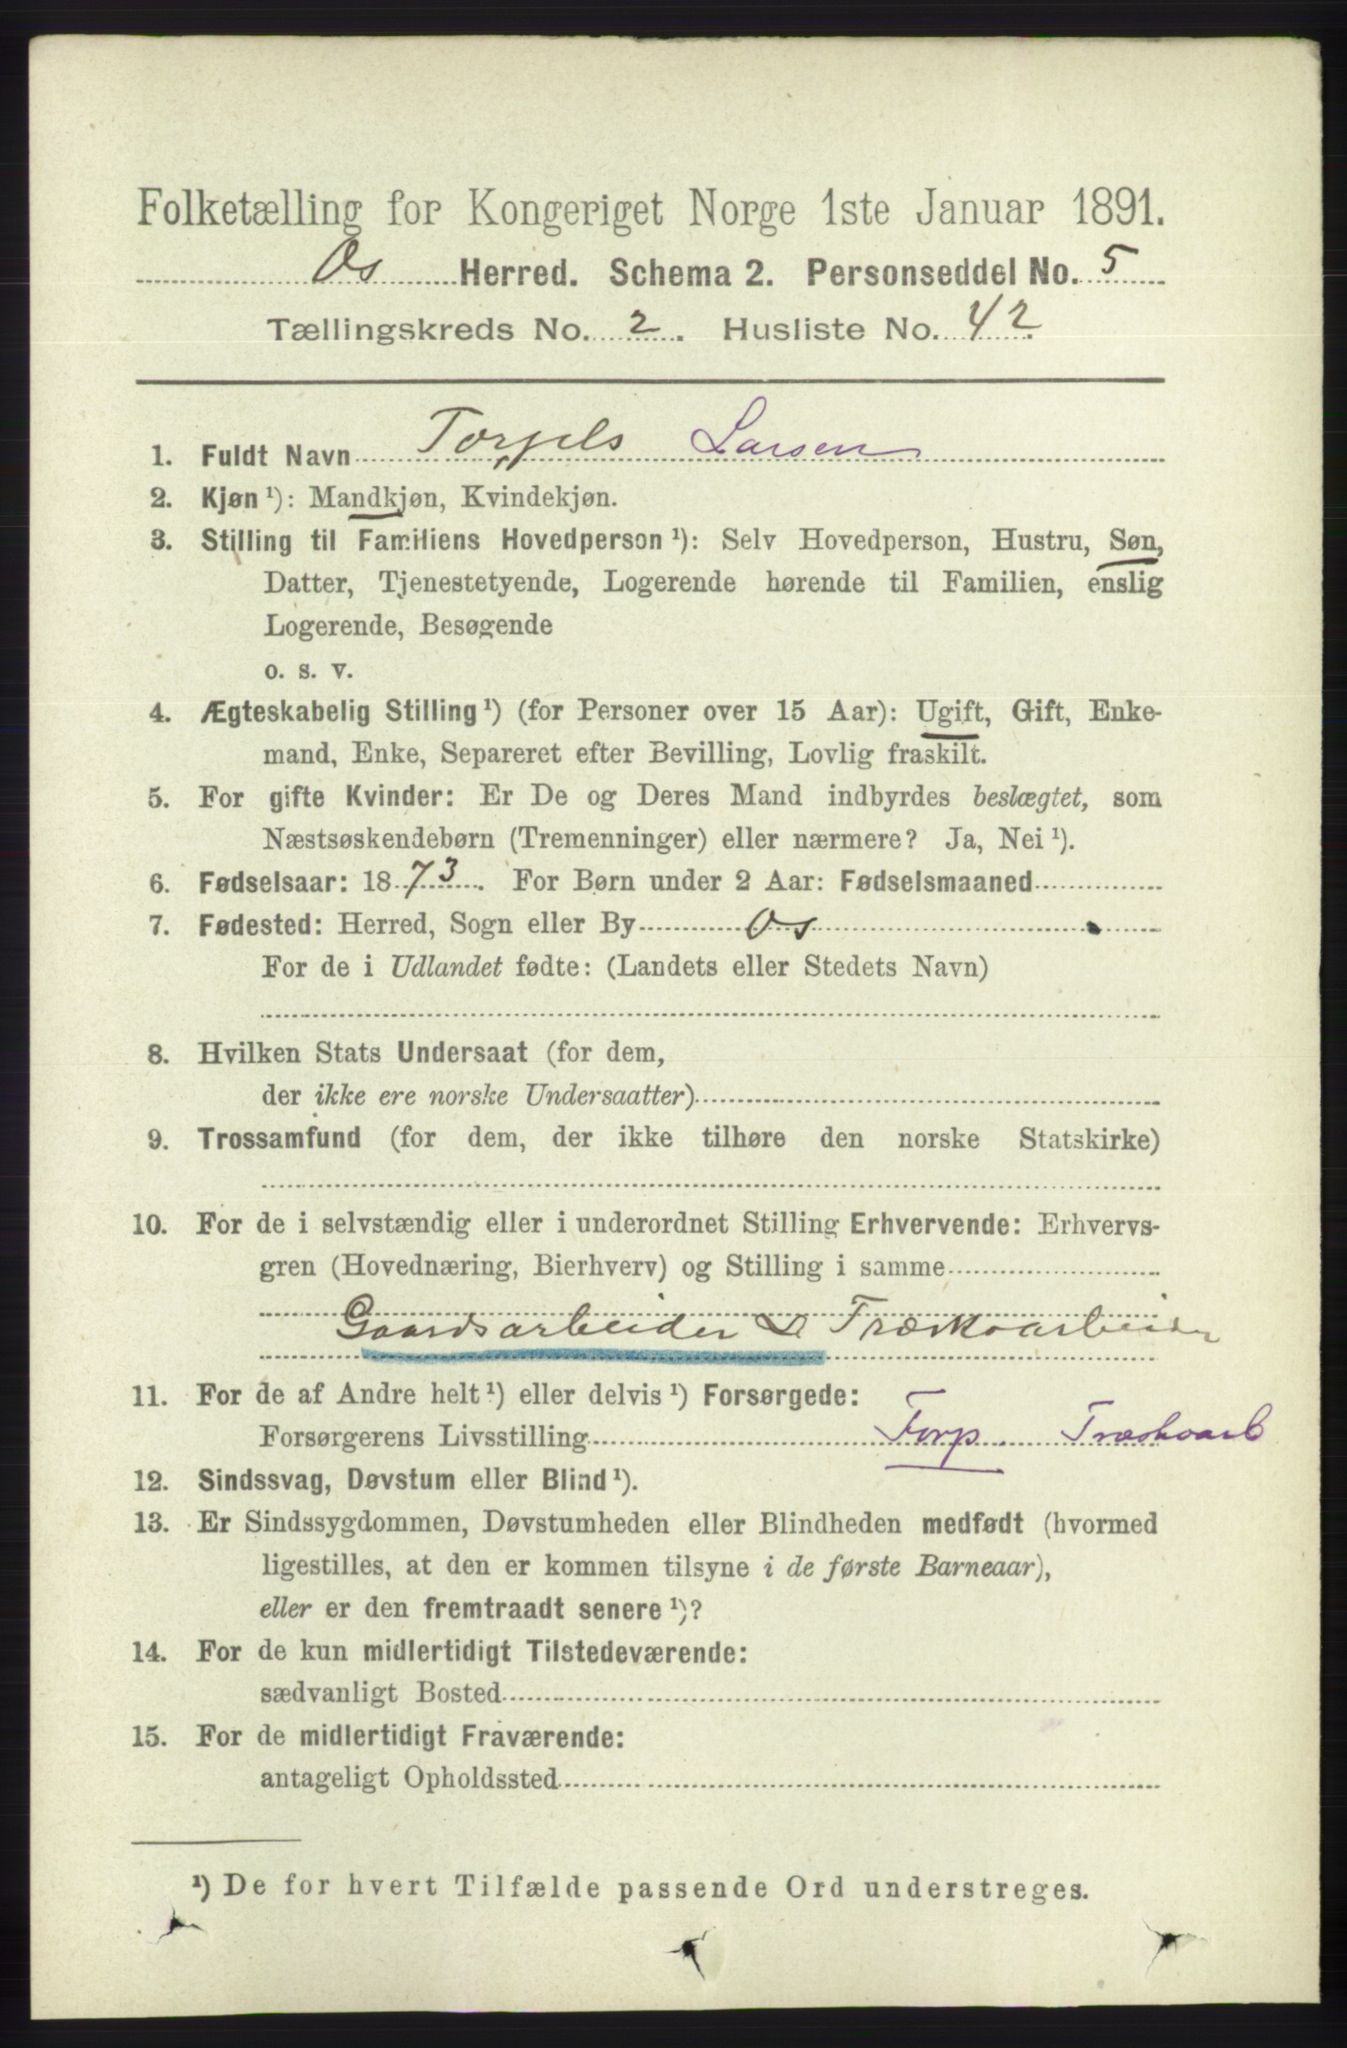 Folketælling for Kongeriget Norge 1ste Januar 1891.
Os Herred. Schema 2. Personseddel No. 5
Tællingskreds No. 2. Husliste No. 42
1. Fuldt Navn Torgels Larsen
2. Kjøn ¹): Mandkjøn, Kvindekjøn.
3. Stilling til Familiens Hovedperson ¹): Selv Hovedperson, Hustru, Søn,
Datter, Tjenestetyende, Logerende hørende til Familien, enslig
Logerende, Besøgende
o. s. v.
4. Ægteskabelig Stilling ¹) (for Personer over 15 Aar): Ugift, Gift, Enke-
mand, Enke, Separeret efter Bevilling, Lovlig fraskilt.
5. For gifte Kvinder: Er De og Deres Mand indbyrdes beslægtet, som
Næstsøskendebørn (Tremenninger) eller nærmere? Ja, Nei ¹).
6. Fødselsaar: 1873. For Børn under 2 Aar: Fødselsmaaned
7. Fødested: Herred, Sogn eller By Os
For de i Udlandet fødte: (Landets eller Stedets Navn)
8. Hvilken Stats Undersaat (for dem,
der ikke ere norske Undersaatter)
9. Trossamfund (for dem, der ikke tilhøre den norske Statskirke)
10. For de i selvstændig eller i underordnet Stilling Erhvervende: Erhvervs-
gren (Hovednæring, Bierhverv) og Stilling i samme
Gaardsarbeider & Træskoarbeider
11. For de af Andre helt ¹) eller delvis ¹) Forsørgede:
Forsørgerens Livsstilling Forp. Træskoarb
12. Sindssvag, Døvstum eller Blind ¹).
13. Er Sindssygdommen, Døvstumheden eller Blindheden medfødt (hvormed
ligestilles, at den er kommen tilsyne i de første Barneaar),
eller er den fremtraadt senere ¹)?
14. For de kun midlertidigt Tilstedeværende:
sædvanligt Bosted
15. For de midlertidigt Fraværende:
antageligt Opholdssted
¹) De for hvert Tilfælde passende Ord understreges.